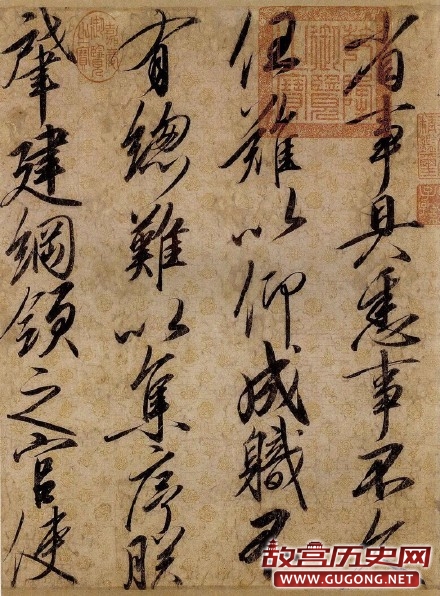 省事具悉事不久
任難以仰成職不
有總難以集序朕
肇建綱領之官使
故宫历史网
WWW.GUGONG.NET